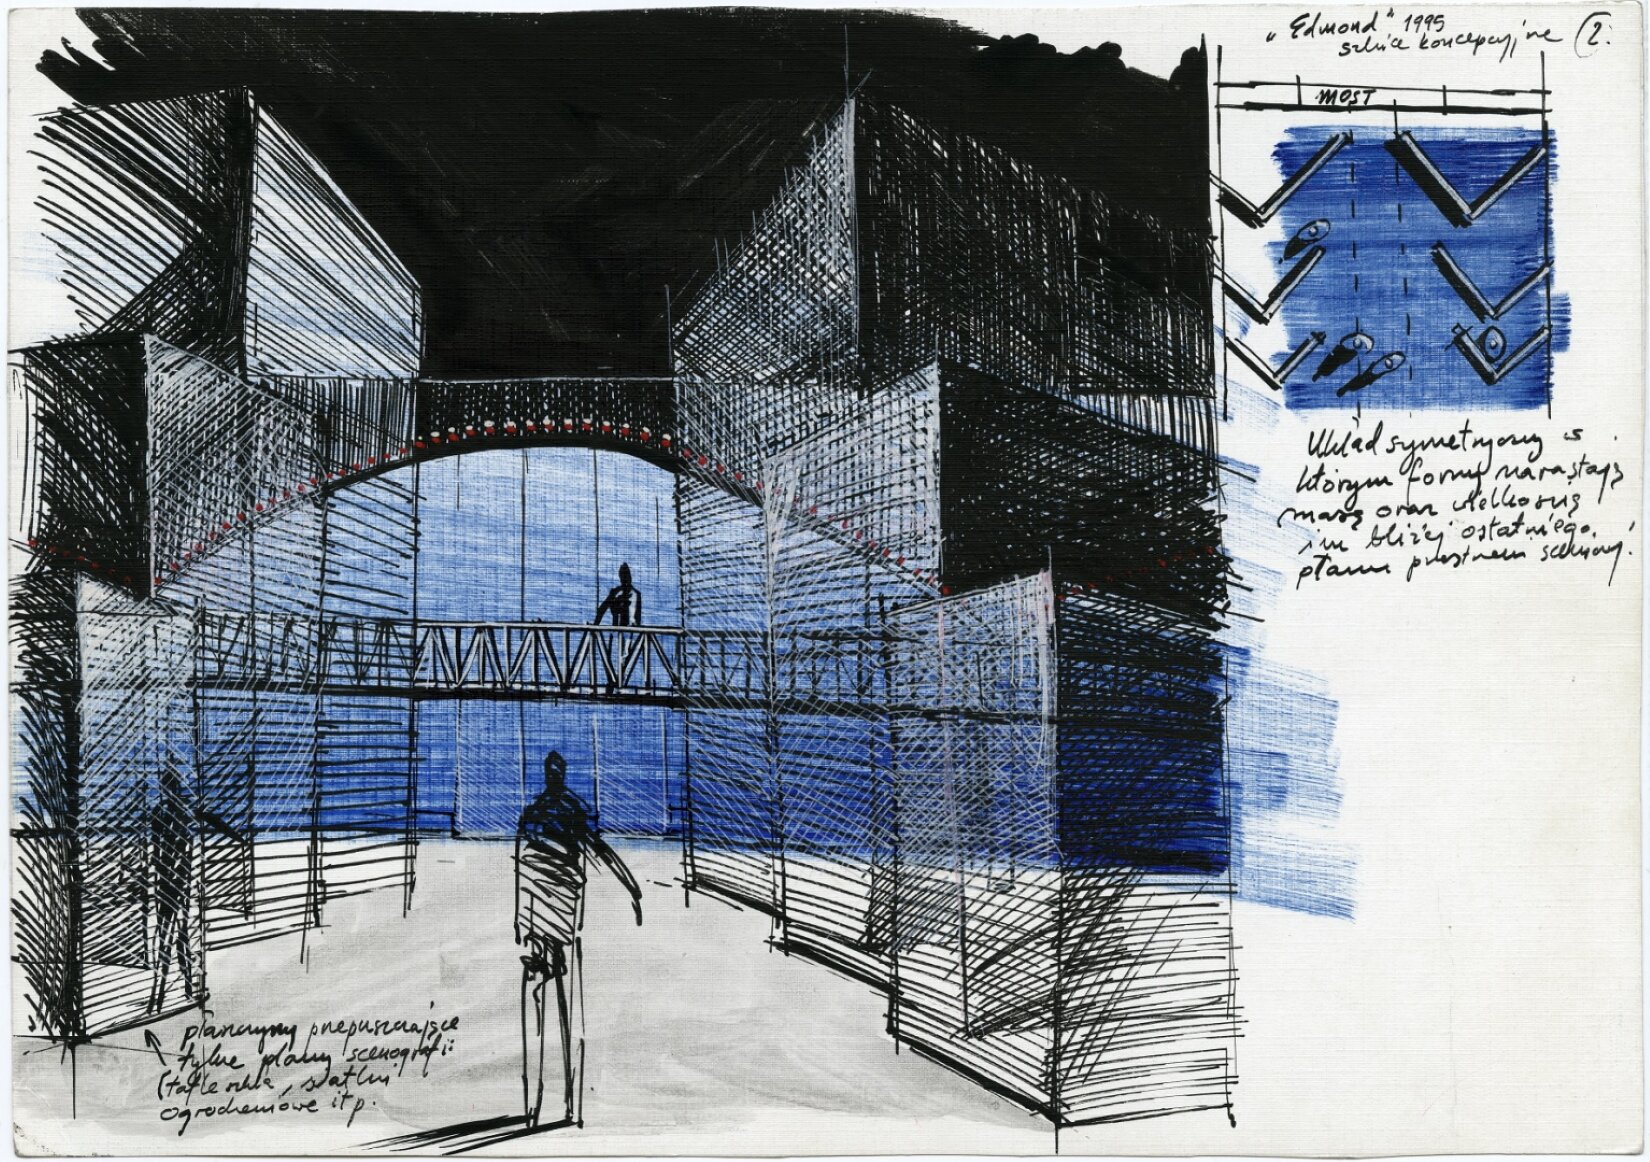 "Edmond" 1995
szkice koncepcyjne 2.
MOST
Układ symetryczny w
którym formy narastają
masą oraz wielkością
im bliżej ostatniego.
planu przestrzeni scenicznej!
płaszczyzny przepuszczające
tylne plany scenografii
(tafle szkła, siatki
ogrodzeniowe itp.